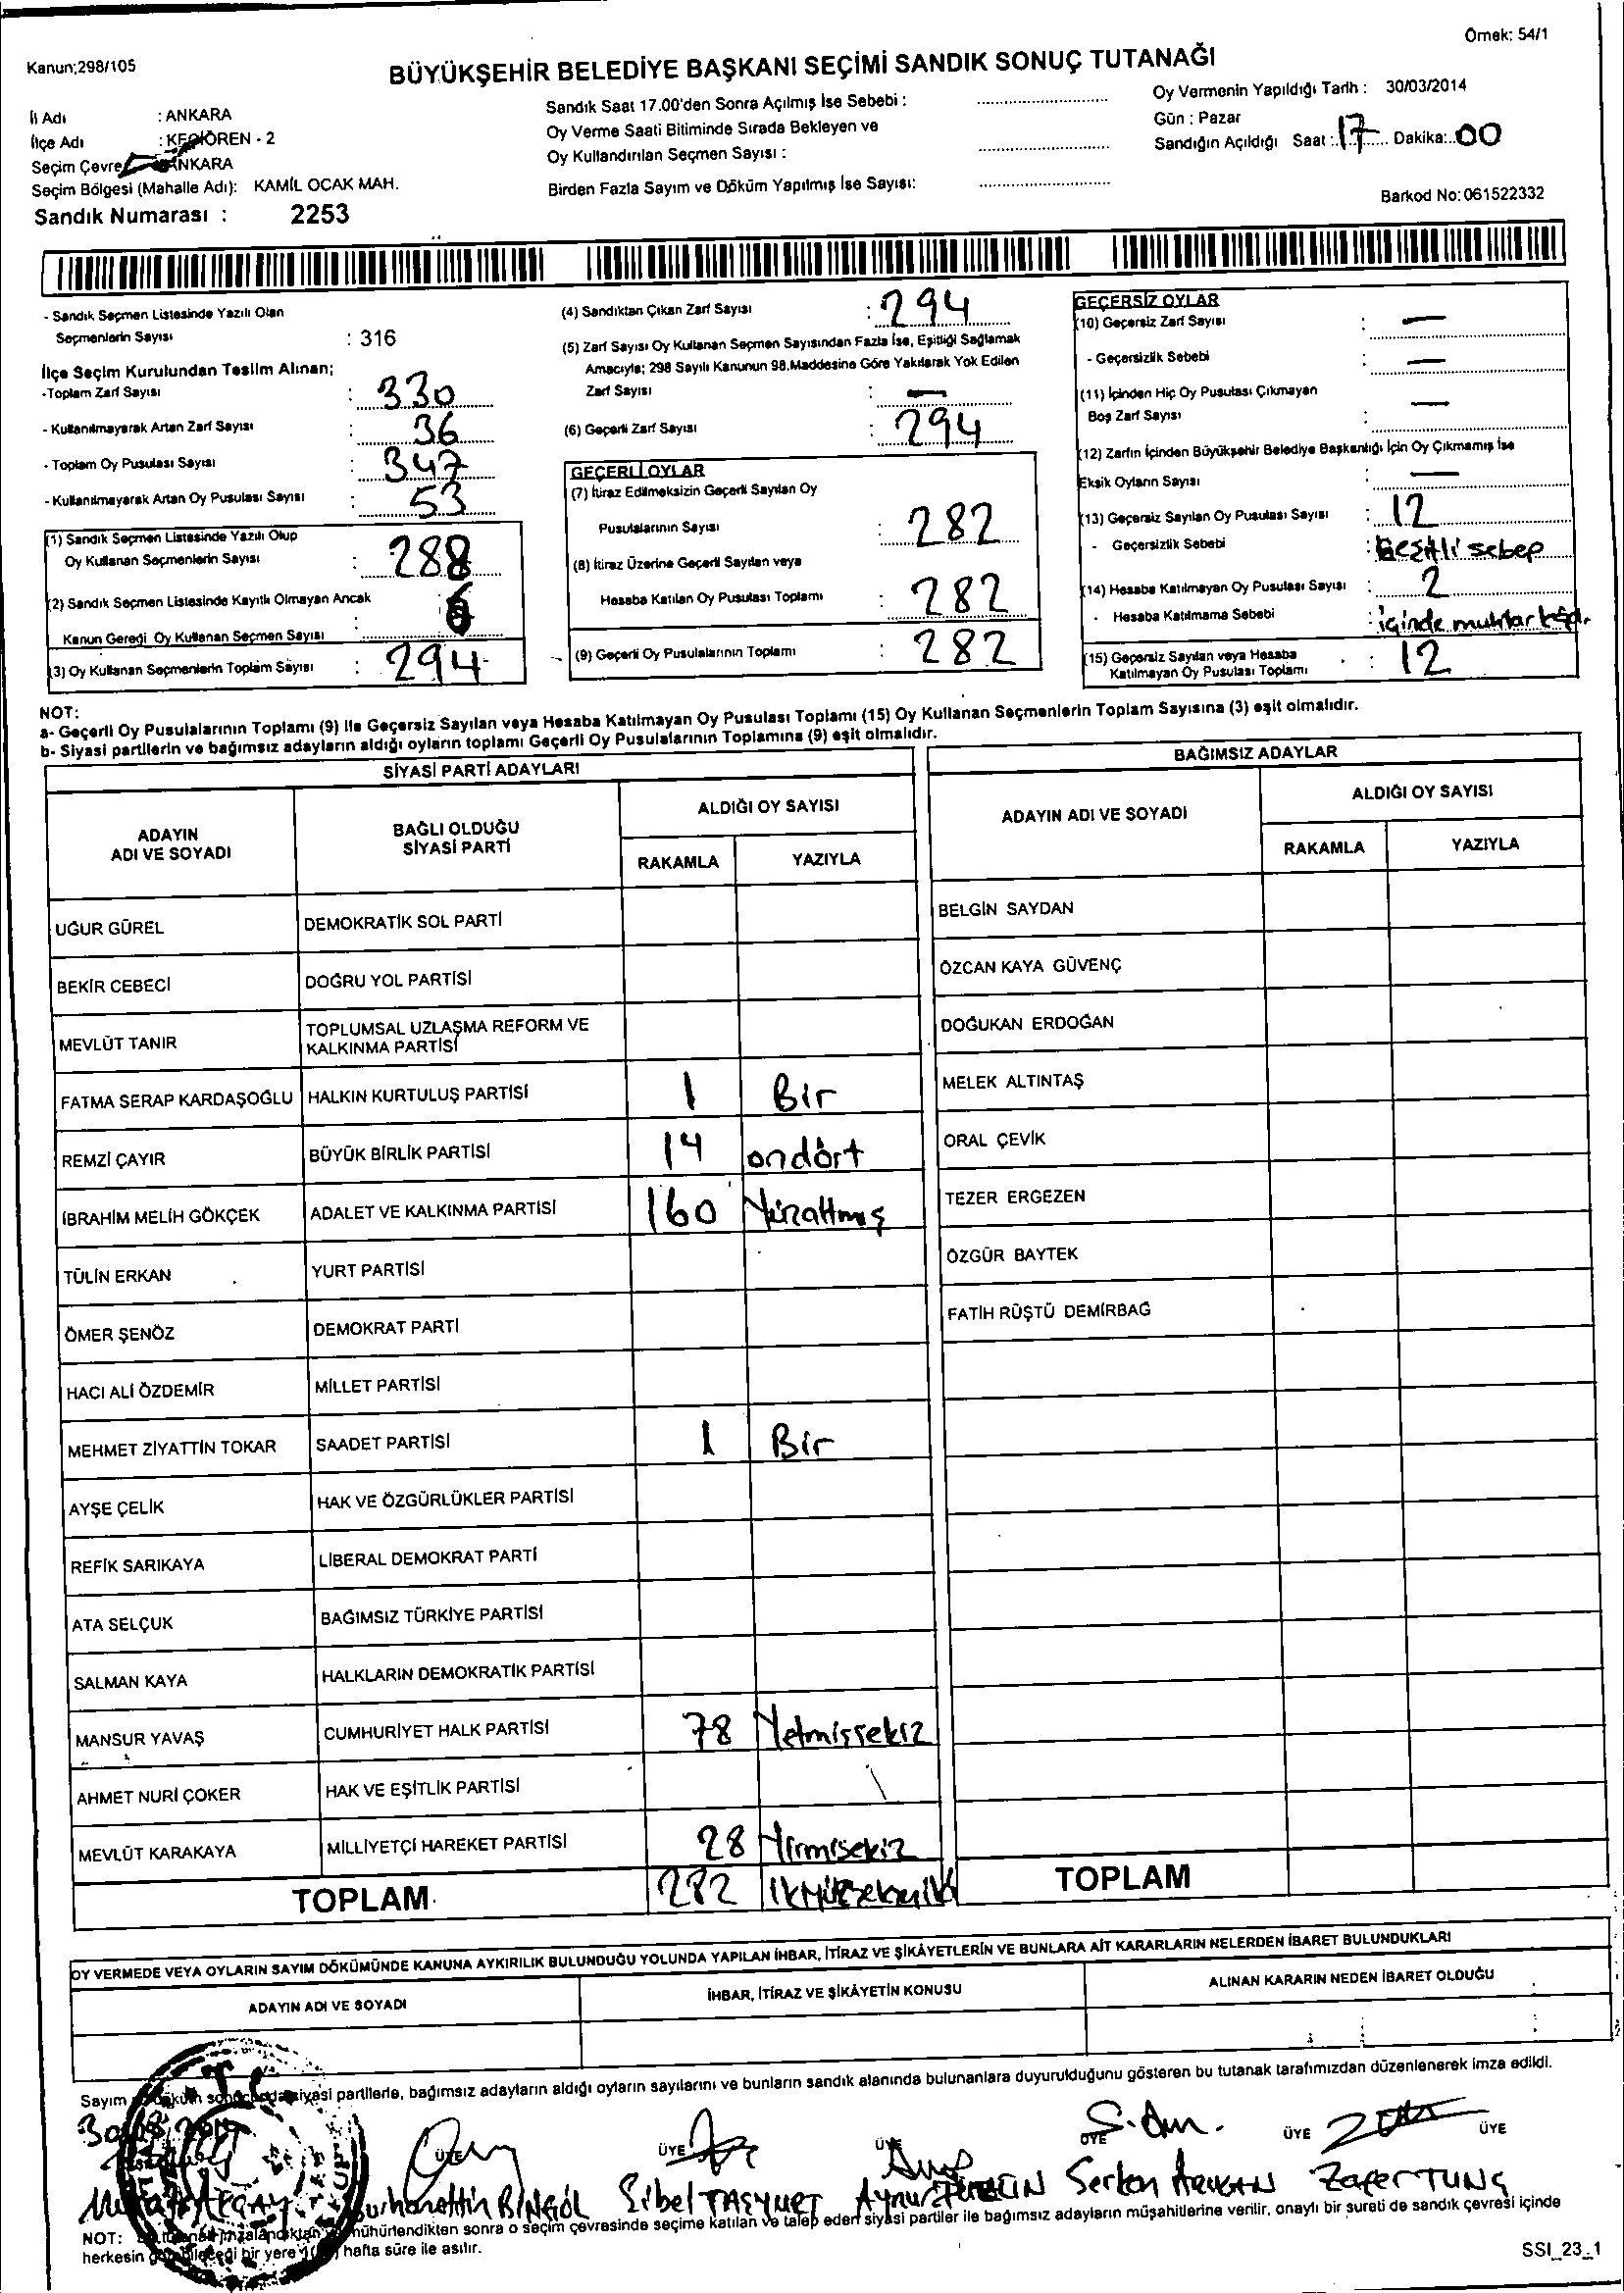 Örnek: 54/1
Kanun;298/105
BÜYÜKŞEHİR BELEDİYE BAŞKANI SEÇİMİ SANDIK SONUÇ TUTANAĞI
İl Adı : ANKARA
İlçe Adı : KEÇİÖREN - 2
Seçim Çevresi : ANKARA
Seçim Bölgesi (Mahalle Adı): KAMİL OCAK MAH.
Sandık Numarası : 2253
Sandık Saat 17.00'den Sonra Açılmış İse Sebebi :
Oy Verme Saati Bitiminde Sırada Bekleyen ve
Oy Kullandırılan Seçmen Sayısı :
Birden Fazla Sayım ve Döküm Yapılmış İse Sayısı:
Oy Vermenin Yapıldığı Tarih : 30/03/2014
Gün : Pazar
Sandığın Açıldığı Saat : 17 Dakika: 00
Barkod No: 061522332
- Sandık Seçmen Listesinde Yazılı Olan
Seçmenlerin Sayısı : 316
İlçe Seçim Kurulundan Teslim Alınan;
-Toplam Zarf Sayısı : 330
- Kullanılmayarak Artan Zarf Sayısı : 36
- Toplam Oy Pusulası Sayısı : 347
- Kullanılmayarak Artan Oy Pusulası Sayısı : 53
(1) Sandık Seçmen Listesinde Yazılı Olup
Oy Kullanan Seçmenlerin Sayısı : 288
(2) Sandık Seçmen Listesinde Kayıtlı Olmayan Ancak
Kanun Gereği Oy Kullanan Seçmen Sayısı : 6
(3) Oy Kullanan Seçmenlerin Toplam Sayısı : 294
(4) Sandıktan Çıkan Zarf Sayısı : 294
(5) Zarf Sayısı Oy Kullanan Seçmen Sayısından Fazla İse, Eşitliği Sağlamak
Amacıyla; 298 Sayılı Kanunun 98.Maddesine Göre Yakılarak Yok Edilen
Zarf Sayısı : —
(6) Geçerli Zarf Sayısı : 294
GEÇERLİ OYLAR
(7) İtiraz Edilmeksizin Geçerli Sayılan Oy
Pusulalarının Sayısı : 282
(8) İtiraz Üzerine Geçerli Sayılan veya
Hesaba Katılan Oy Pusulası Toplamı : 282
(9) Geçerli Oy Pusulalarının Toplamı : 282
GEÇERSİZ OYLAR
(10) Geçersiz Zarf Sayısı : —
- Geçersizlik Sebebi : —
(11) İçinden Hiç Oy Pusulası Çıkmayan
Boş Zarf Sayısı : —
(12) Zarfın İçinden Büyükşehir Belediye Başkanlığı İçin Oy Çıkmamış İse
Eksik Oyların Sayısı : —
(13) Geçersiz Sayılan Oy Pusulası Sayısı : 12
- Geçersizlik Sebebi : Çeşitli sebep
(14) Hesaba Katılmayan Oy Pusulası Sayısı : 2
- Hesaba Katılmama Sebebi : içinde muhtar
(15) Geçersiz Sayılan veya Hesaba
Katılmayan Oy Pusulası Toplamı : 12
NOT:
a- Geçerli Oy Pusulalarının Toplamı (9) ile Geçersiz Sayılan veya Hesaba Katılmayan Oy Pusulası Toplamı (15) Oy Kullanan Seçmenlerin Toplam Sayısına (3) eşit olmalıdır.
b- Siyasi partilerin ve bağımsız adayların aldığı oyların toplamı Geçerli Oy Pusulalarının Toplamına (9) eşit olmalıdır.
SİYASİ PARTİ ADAYLARI
ADAYIN ADI VE SOYADI
BAĞLI OLDUĞU SİYASİ PARTİ
ALDIĞI OY SAYISI
RAKAMLA YAZIYLA
UĞUR GÜREL DEMOKRATİK SOL PARTİ
BEKİR CEBECİ DOĞRU YOL PARTİSİ
MEVLÜT TANIR TOPLUMSAL UZLAŞMA REFORM VE KALKINMA PARTİSİ
FATMA SERAP KARDAŞOĞLU HALKIN KURTULUŞ PARTİSİ 1 Bir
REMZİ ÇAYIR BÜYÜK BİRLİK PARTİSİ 14 ondört
İBRAHİM MELİH GÖKÇEK ADALET VE KALKINMA PARTİSİ 160 Yüzaltmış
TÜLİN ERKAN YURT PARTİSİ
ÖMER ŞENÖZ DEMOKRAT PARTİ
HACI ALİ ÖZDEMİR MİLLET PARTİSİ
MEHMET ZİYATTİN TOKAR SAADET PARTİSİ 1 Bir
AYŞE ÇELİK HAK VE ÖZGÜRLÜKLER PARTİSİ
REFİK SARIKAYA LİBERAL DEMOKRAT PARTİ
ATA SELÇUK BAĞIMSIZ TÜRKİYE PARTİSİ
SALMAN KAYA HALKLARIN DEMOKRATİK PARTİSİ
MANSUR YAVAŞ CUMHURİYET HALK PARTİSİ 78 Yetmişsekiz
AHMET NURİ ÇOKER HAK VE EŞİTLİK PARTİSİ
MEVLÜT KARAKAYA MİLLİYETÇİ HAREKET PARTİSİ 28 Yirmisekiz
TOPLAM 282
BAĞIMSIZ ADAYLAR
ADAYIN ADI VE SOYADI
ALDIĞI OY SAYISI
RAKAMLA YAZIYLA
BELGİN SAYDAN
ÖZCAN KAYA GÜVENÇ
DOĞUKAN ERDOĞAN
MELEK ALTINTAŞ
ORAL ÇEVİK
TEZER ERGEZEN
ÖZGÜR BAYTEK
FATİH RÜŞTÜ DEMİRBAĞ
TOPLAM
OY VERMEDE VEYA OYLARIN SAYIM DÖKÜMÜNDE KANUNA AYKIRILIK BULUNDUĞU YOLUNDA YAPILAN İHBAR, İTİRAZ VE ŞİKÂYETLERİN VE BUNLARA AİT KARARLARIN NELERDEN İBARET BULUNDUKLARI
ADAYIN ADI VE SOYADI İHBAR, İTİRAZ VE ŞİKÂYETİN KONUSU ALINAN KARARIN NEDEN İBARET OLDUĞU
Sayım siyasi partilerle, bağımsız adayların aldığı oyların sayılarını ve bunların sandık alanında bulunanlara duyurulduğunu gösteren bu tutanak tarafımızdan düzenlenerek imza edildi.
ÜYE ÜYE ÜYE ÜYE ÜYE ÜYE
Burhanettin BİNGÖL Sibel TAŞYURT Aynur Serkan ARIKAN Zafer TUNÇ
NOT: mühürlendikten sonra o seçim çevresinde seçime katılan ve talep eden siyasi partiler ile bağımsız adayların müşahitlerine verilir, onaylı bir sureti de sandık çevresi içinde
herkesin bir yere hafta süre ile asılır.
SSI_23_1